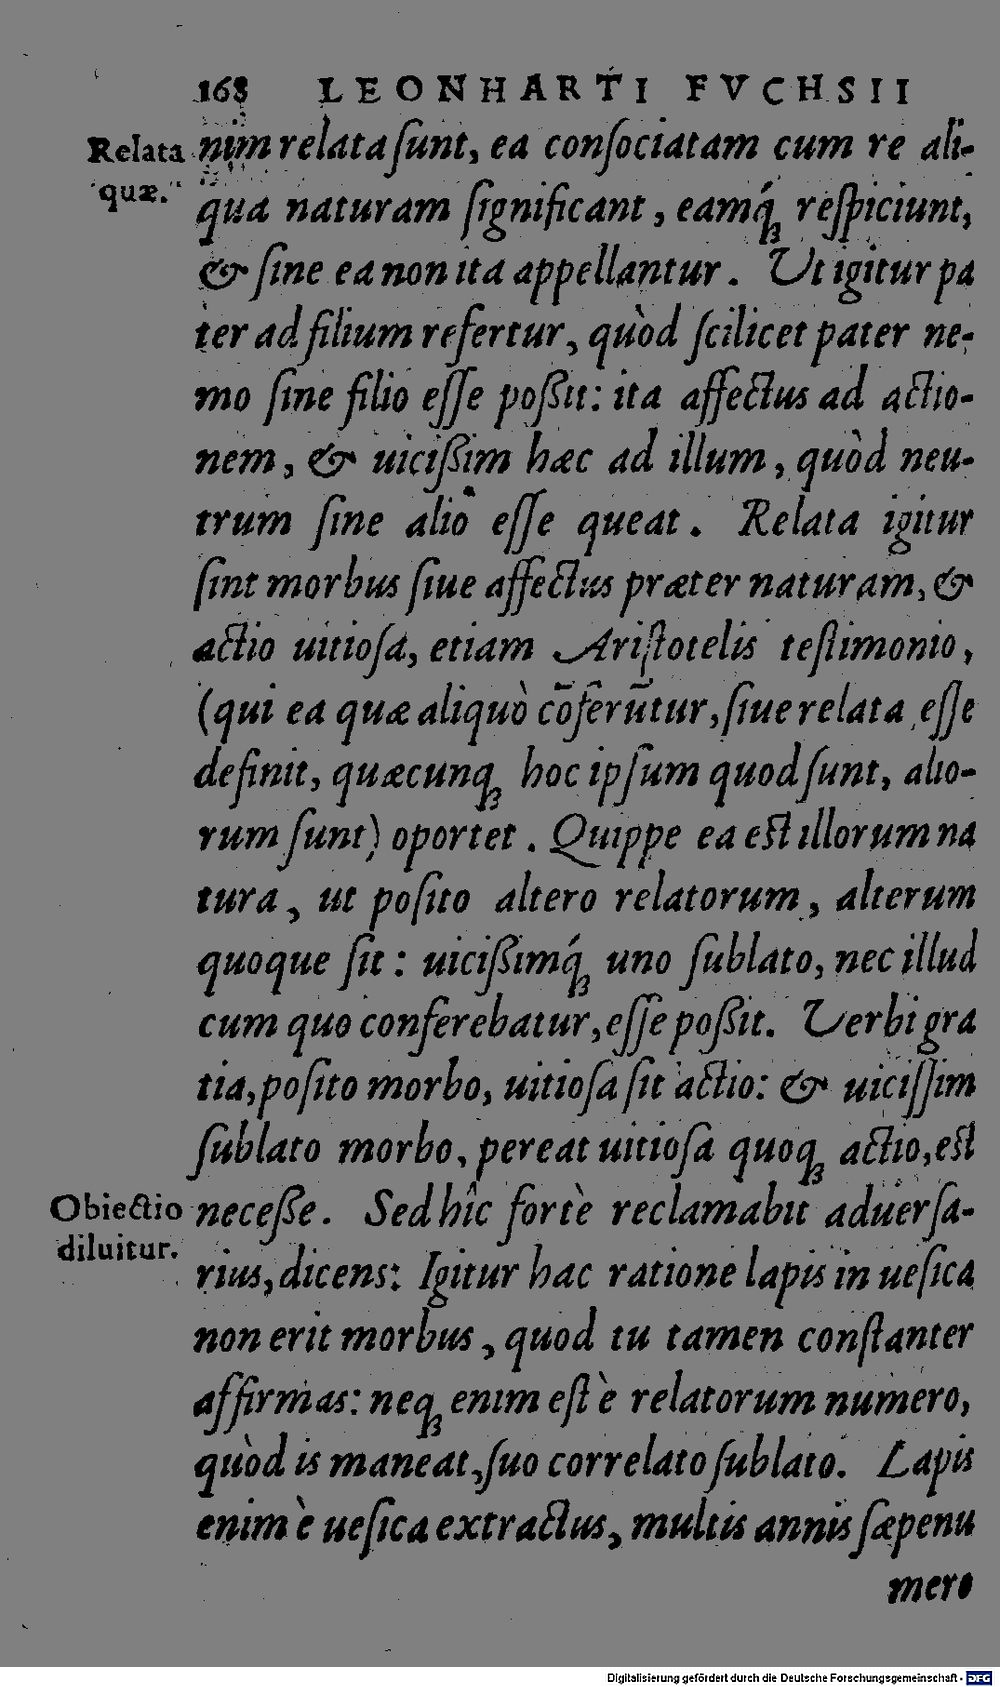 168 LEONHARTI FVCHSII
Relata
quæ.
nim relata ſunt, ea conſociatam cum re ali-
qua naturam ſignificant, eamq́ꝫ reſpiciunt,
& ſine ea non ita appellantur. Ut igitur pa
ter ad filium refertur, quòd ſcilicet pater ne-
mo ſine filio eſſe poßit: ita affectus ad actio-
nem, & uicißim hæc ad illum, quòd neu-
trum ſine alio eſſe queat. Relata igitur
ſint morbus ſiue affectus præter naturam, &
actio uitioſa, etiam Ariſtotelis teſtimonio,
(qui ea quæ aliquò cõferũtur, ſiue relata eſſe
definit, quæcunqꝫ hoc ipſum quod ſunt, alio-
rum ſunt) oportet. Quippe ea eſt illorum na
tura, ut poſito altero relatorum, alterum
quoque ſit: uicißimq́ꝫ uno ſublato, nec illud
cum quo conferebatur, eſſe poßit. Verbi gra
tia, poſito morbo, uitioſa ſit actio: & uiciſſim
ſublato morbo, pereat uitioſa quoqꝫ actio, eſt
Obiectio
diluitur.
neceße. Sed hîc fortè reclamabit aduerſa-
rius, dicens: Igitur hac ratione lapis in ueſica
non erit morbus, quod tu tamen conſtanter
affirmas: neqꝫ enim eſt è relatorum numero,
quòd is maneat, ſuo correlato ſublato. Lapis
enim è ueſica extractus, multis annis ſæpenu
mero
Digitalisierung gefördert durch die Deutsche Forschungsgemeinschaft - DFG